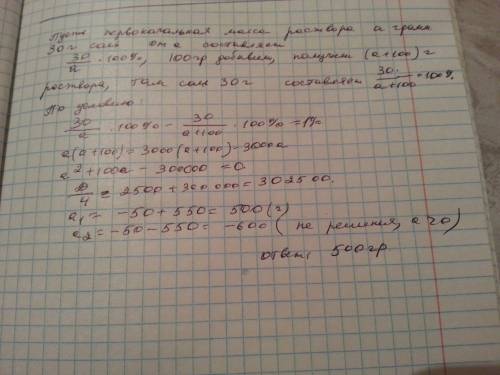 Пусть первоначальная масса раствора a грамм
30 г соли от a составляет
30/a · 100%, 100гр добавили, получили (a+100) г
раствора, там соли 30 г составляет 30/(a+100) · 100%.
По условию:
30/a · 100% - 30/(a+100) · 100% = 1%
a(a+100) = 3000(a+100) - 3000a
a² + 100a - 300000 = 0
D/4 = 2500 + 300 000 = 302500.
a₁ = -50 + 550 = 500 (г)
a₂ = -50 - 550 = -600 ( не решение, a>0)
ответ: 500гр